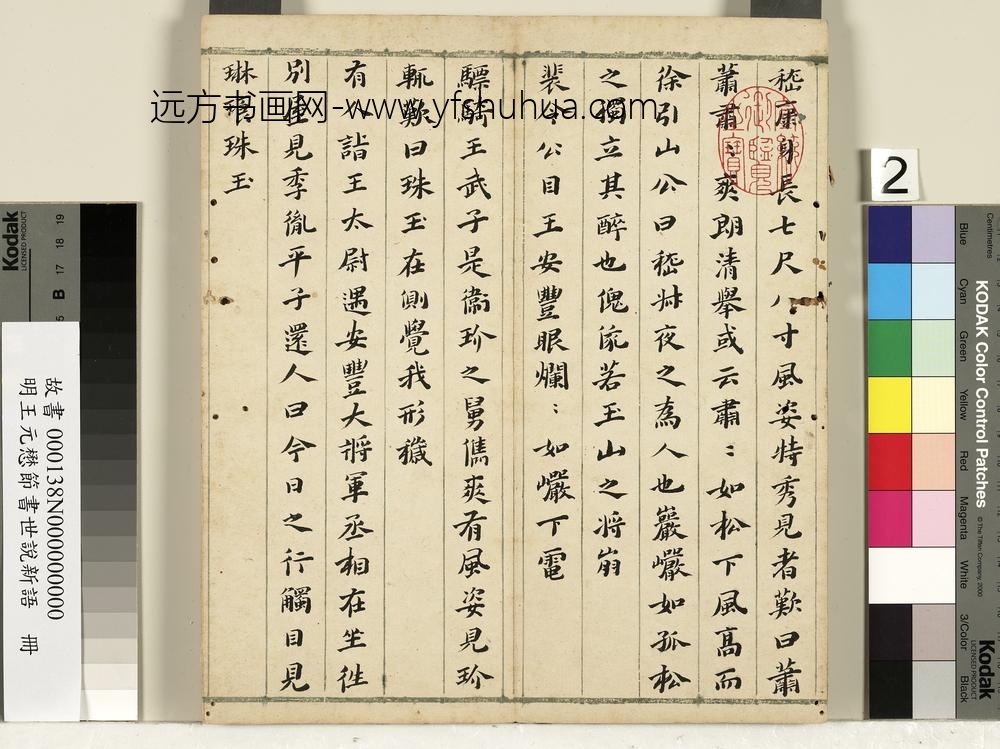 嵇康身長七尺八寸風姿特秀見者歎曰蕭
蕭肅〻爽朗清舉或云肅〻如松下風髙而
徐引山公曰嵇叔夜之為人也巖巖如孤松
之獨立其醉也傀俄若玉山之將崩
裴令公目王安豐眼爛〻如巖下電
驃騎王武子是衞玠之舅儁爽有風姿見玠
輒歎曰珠玉在側覺我形穢
有人詣王太尉遇安豐大將軍丞相在坐徃
別屋見季胤平子還人曰今日之行觸目見
琳琅珠玉
乾隆御覽之寶
远方书画网-www.yfshuhua.com
2
故書 000138N000000000
明王元懋節書世說新語 冊
Kodak
LICENSED PRODUCT
B 17 18 19
Centimetres
KODAK Color Control Patches
© The Tiffen Company, 2000
Blue
Cyan
Green
Yellow
Red
Magenta
White
3/Color
Black
Kodak
LICENSED PRODUCT